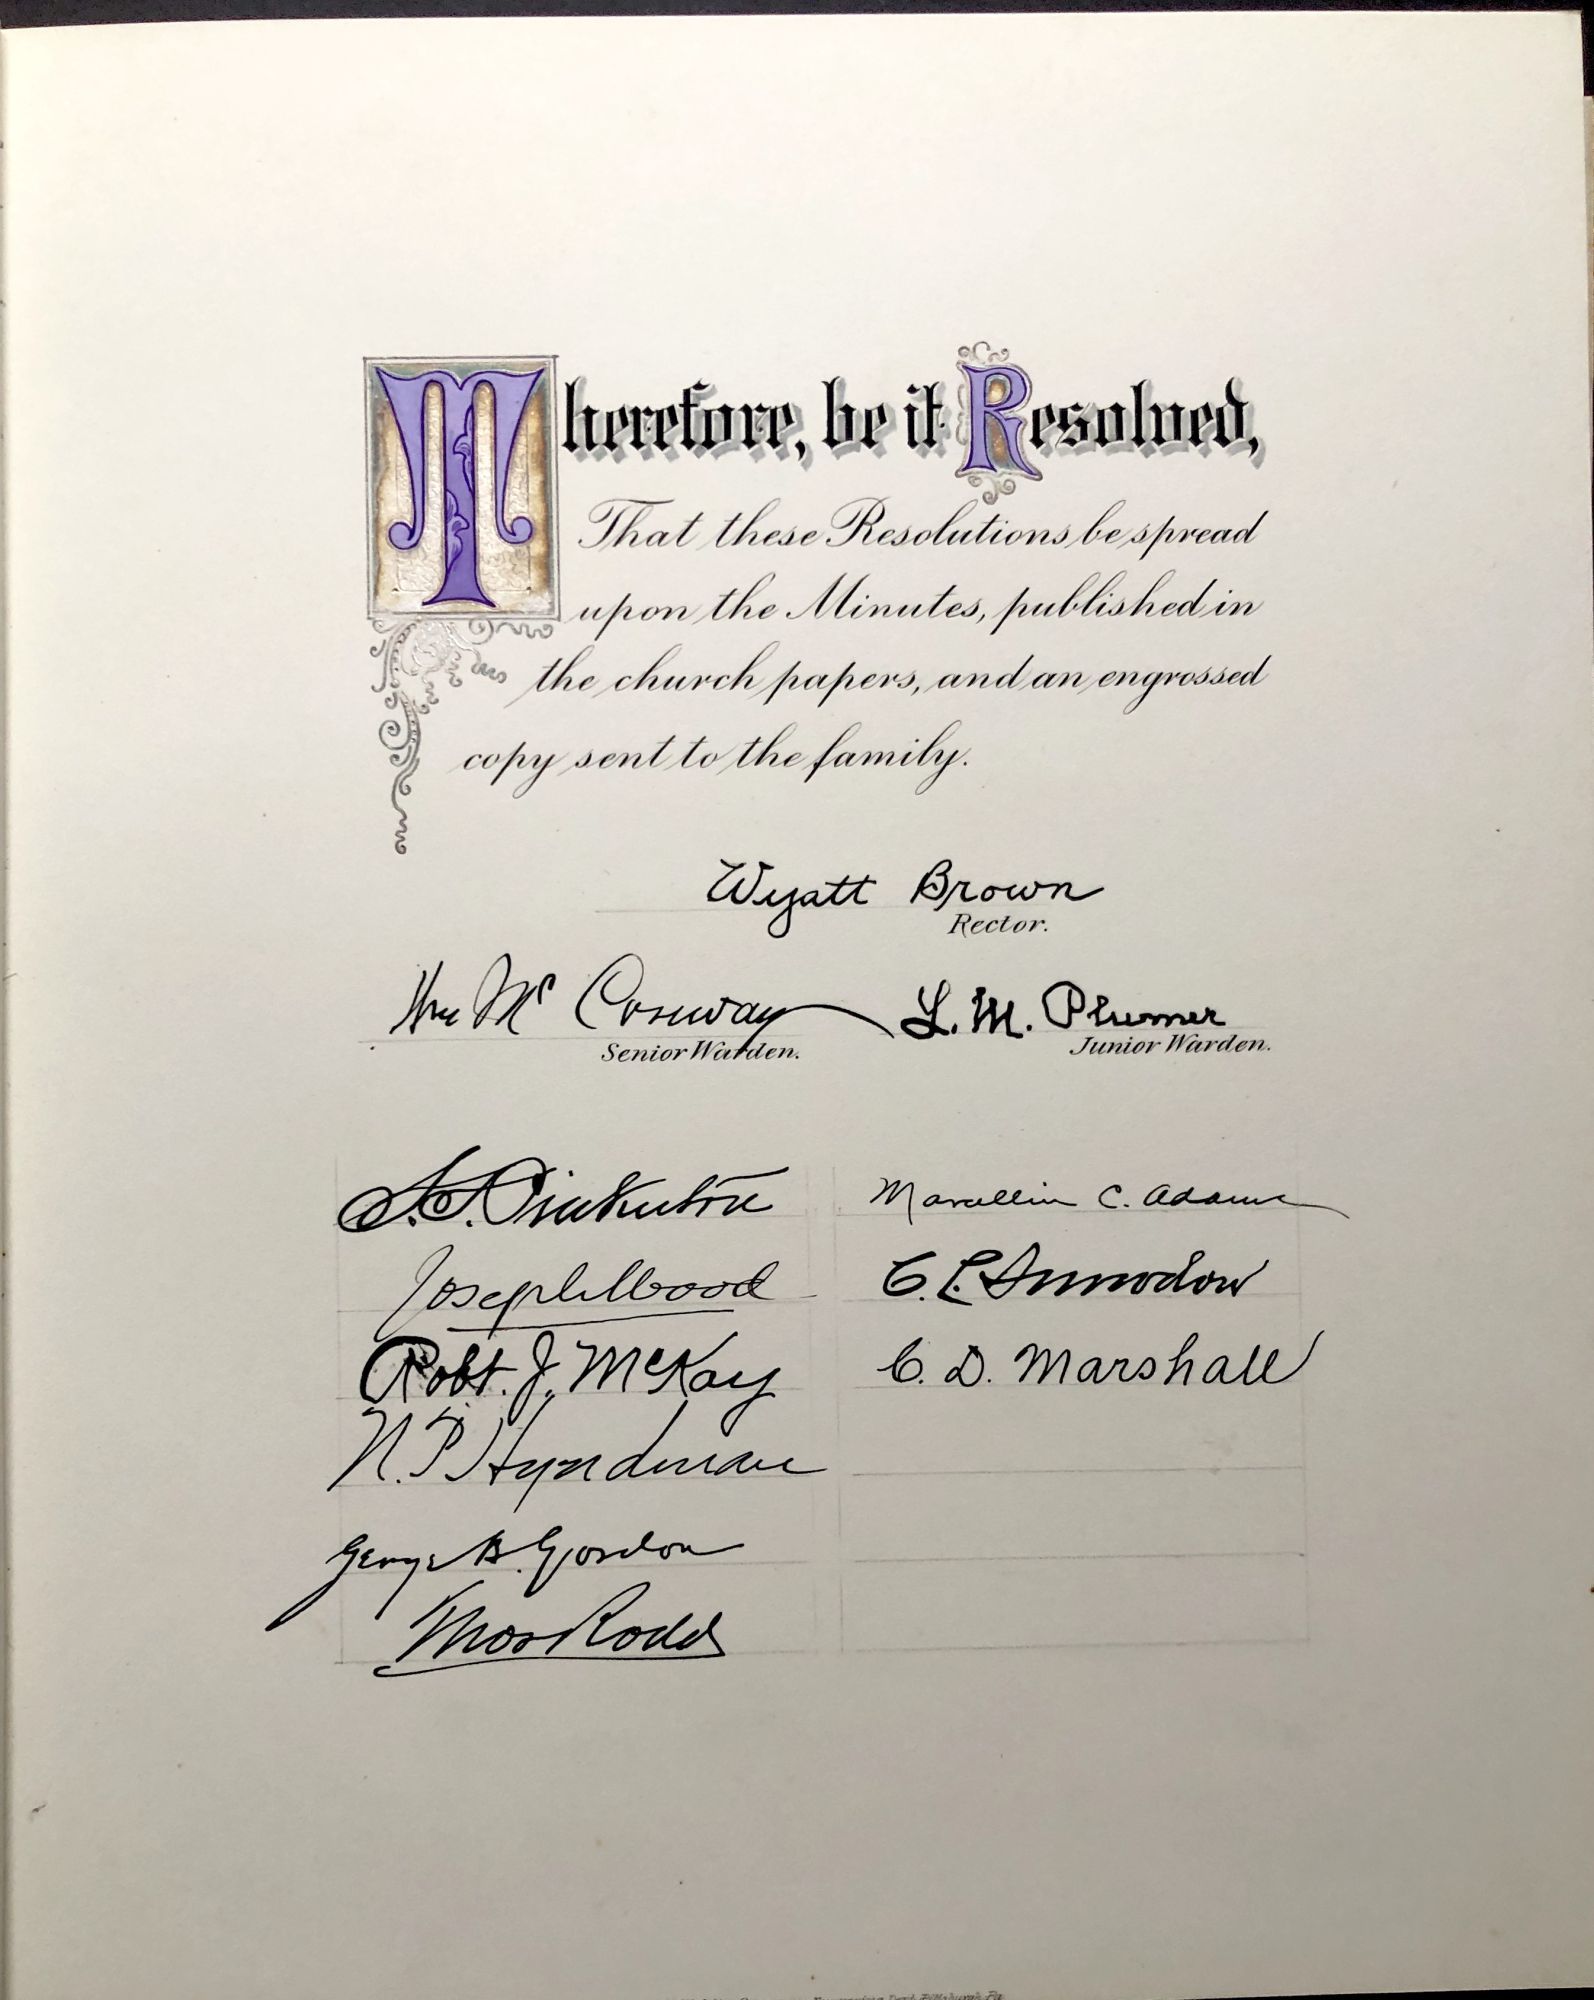 Therefore, be it Resolved,
That these Resolutions be spread
upon the Minutes, published in
the church papers, and an engrossed
copy sent to the family.
Wyatt Brown
Rector.
Wm Mc Conway
Senior Warden.
L. M. Plumer
Junior Warden.
Pinkerton
Marcellin C. Adams
Joseph Wood
C. L. Snowdon
Robt. J. McKay
C. D. Marshall
N. P. Hyndman
George B. Gordon
Thos Rodd
Engrossing Dept. Pittsburgh Pa.